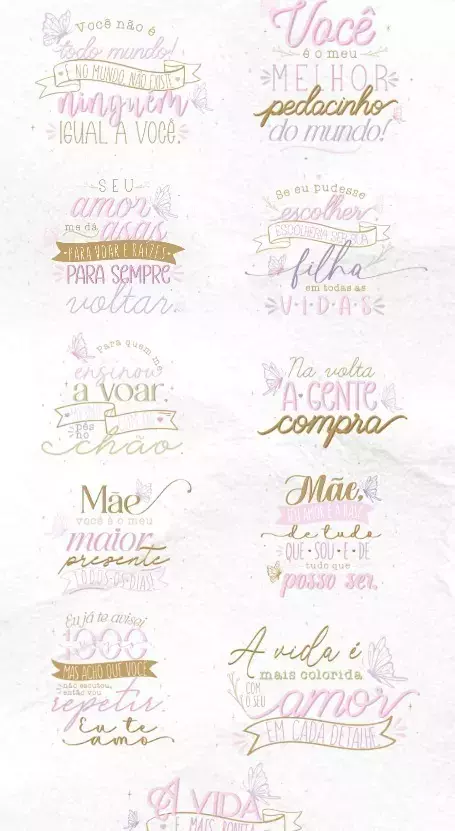 Você não é
todo mundo!
E NO MUNDO NÃO EXISTE
ninguém
IGUAL A VOCÊ.
Você
é o meu
MELHOR
pedacinho
do mundo!
SEU
amor
me dá
asas
PARA VOAR E RAÍZES
PARA SEMPRE
voltar.
Se eu pudesse
escolher
ESCOLHERIA SER SUA
filha
em todas as
V·I·D·A·S
Para quem me
ensinou
a voar
pés
no
chão
Na volta
A GENTE
compra
Mãe
você é o meu
maior
presente
TODOS OS DIAS!
Mãe,
SEU AMOR É A BASE
de tudo
QUE·SOU·E·DE
tudo que
posso ser.
Eu já te avisei
1000
MAS ACHO QUE VOCÊ
não escutou,
então vou
repetir
Eu te
amo
A vida é
mais colorida
COM
O SEU
amor
EM CADA DETALHE
A VIDA
É MAIS BONITA